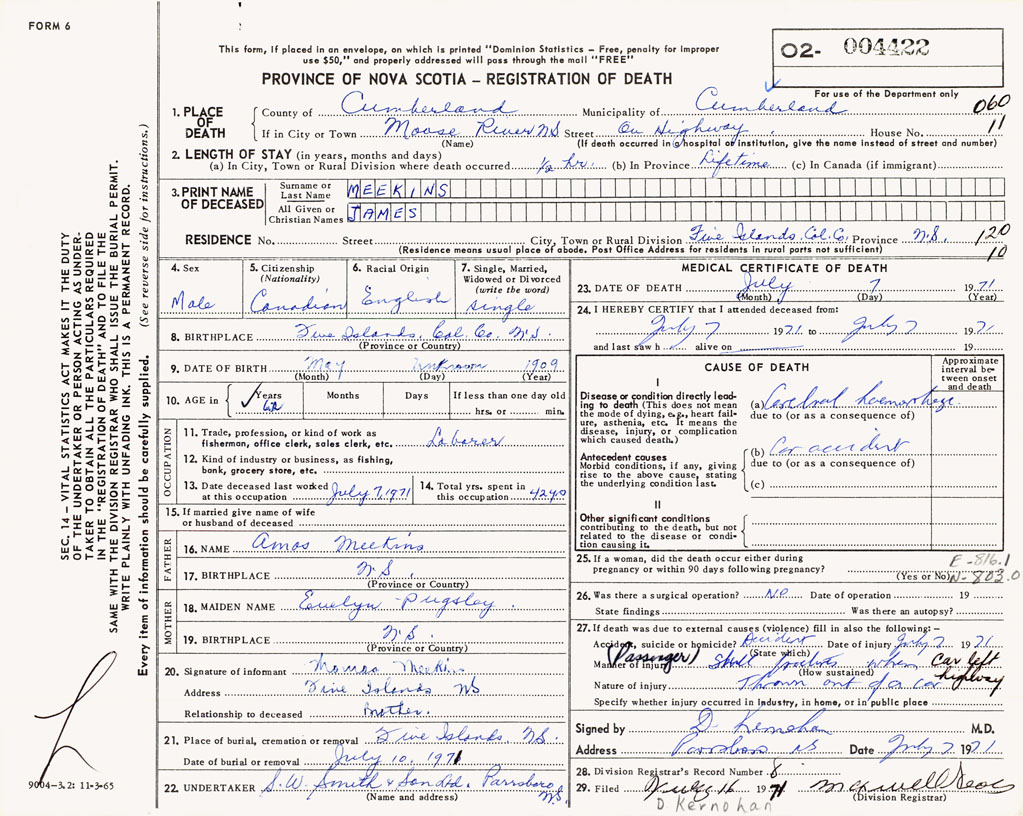 FORM 6
This form, if placed in an envelope, on which is printed "Dominion Statistics – Free, penalty for improper
use $50," and properly addressed will pass through the mail "FREE"
O2- 004422
PROVINCE OF NOVA SCOTIA – REGISTRATION OF DEATH
For use of the Department only
1. PLACE OF DEATH County of Cumberland Municipality of Cumberland 060
If in City or Town Moose River NS Street On Highway House No. 11
(Name) (If death occurred in a hospital or institution, give the name instead of street and number)
2. LENGTH OF STAY (in years, months and days)
(a) In City, Town or Rural Division where death occurred ½ hr. (b) In Province Lifetime (c) In Canada (if immigrant)
3. PRINT NAME OF DECEASED Surname or Last Name MEEKINS
All Given or Christian Names JAMES
RESIDENCE No. Street City, Town or Rural Division Five Islands, Col. Co. Province N.S. 120
(Residence means usual place of abode. Post Office Address for residents in rural parts not sufficient) 10
4. Sex Male
5. Citizenship (Nationality) Canadian
6. Racial Origin English
7. Single, Married, Widowed or Divorced (write the word) single
8. BIRTHPLACE Five Islands, Col. Co. N.S.
(Province or Country)
9. DATE OF BIRTH May unknown 1909
(Month) (Day) (Year)
10. AGE in Years 62 Months Days If less than one day old
hrs. or min.
OCCUPATION
11. Trade, profession, or kind of work as
fisherman, office clerk, sales clerk, etc. Laborer
12. Kind of industry or business, as fishing,
bank, grocery store, etc.
13. Date deceased last worked at this occupation July 7, 1971
14. Total yrs. spent in this occupation 42 yrs
15. If married give name of wife
or husband of deceased
FATHER
16. NAME Amos Meekins
17. BIRTHPLACE N.S.
(Province or Country)
MOTHER
18. MAIDEN NAME Evelyn Pugsley.
19. BIRTHPLACE N.S.
(Province or Country)
20. Signature of informant Meekin
Address Five Islands NS
Relationship to deceased
21. Place of burial, cremation or removal Five Islands NS.
Date of burial or removal July 10, 1971
22. UNDERTAKER S.W. Smith & Son Ltd. Parrsboro N.S.
(Name and address)
MEDICAL CERTIFICATE OF DEATH
23. DATE OF DEATH July 7 1971
(Month) (Day) (Year)
24. I HEREBY CERTIFY that I attended deceased from:
July 7 1971 to July 7 1971
and last saw h alive on 19
CAUSE OF DEATH
Approximate interval between onset and death
I
Disease or condition directly leading to death (This does not mean
the mode of dying, e.g., heart failure, asthenia, etc. It means the
disease, injury, or complication
which caused death.)
(a) Cerebral haemorrhage
due to (or as a consequence of)
Antecedent causes
Morbid conditions, if any, giving
rise to the above cause, stating
the underlying condition last.
(b) Car accident
due to (or as a consequence of)
(c)
II
Other significant conditions
contributing to the death, but not
related to the disease or condition causing it.
25. If a woman, did the death occur either during
pregnancy or within 90 days following pregnancy?
(Yes or No)
E-816.1
N-803.0
26. Was there a surgical operation? No Date of operation 19
State findings Was there an autopsy?
27. If death was due to external causes (violence) fill in also the following: –
Accident, suicide or homicide? Accident Date of injury July 7 1971
(State which)
Manner of injury (Passenger) when car left highway
(How sustained)
Nature of injury Thrown out of a car
Specify whether injury occurred in industry, in home, or in public place
Signed by D Kernohan M.D.
Address Parrsboro NS Date July 7 1971
28. Division Registrar's Record Number 8
29. Filed July 16 1971
(Division Registrar)
D Kernohan
SEC. 14 – VITAL STATISTICS ACT MAKES IT THE DUTY
OF THE UNDERTAKER OR PERSON ACTING AS UNDERTAKER TO OBTAIN ALL THE PARTICULARS REQUIRED
IN THE "REGISTRATION OF DEATH" AND TO FILE THE
SAME WITH THE DIVISION REGISTRAR WHO SHALL ISSUE THE BURIAL PERMIT.
WRITE PLAINLY WITH UNFADING INK. THIS IS A PERMANENT RECORD.
Every item of information should be carefully supplied. (See reverse side for instructions.)
9004–3.2: 11-3-65